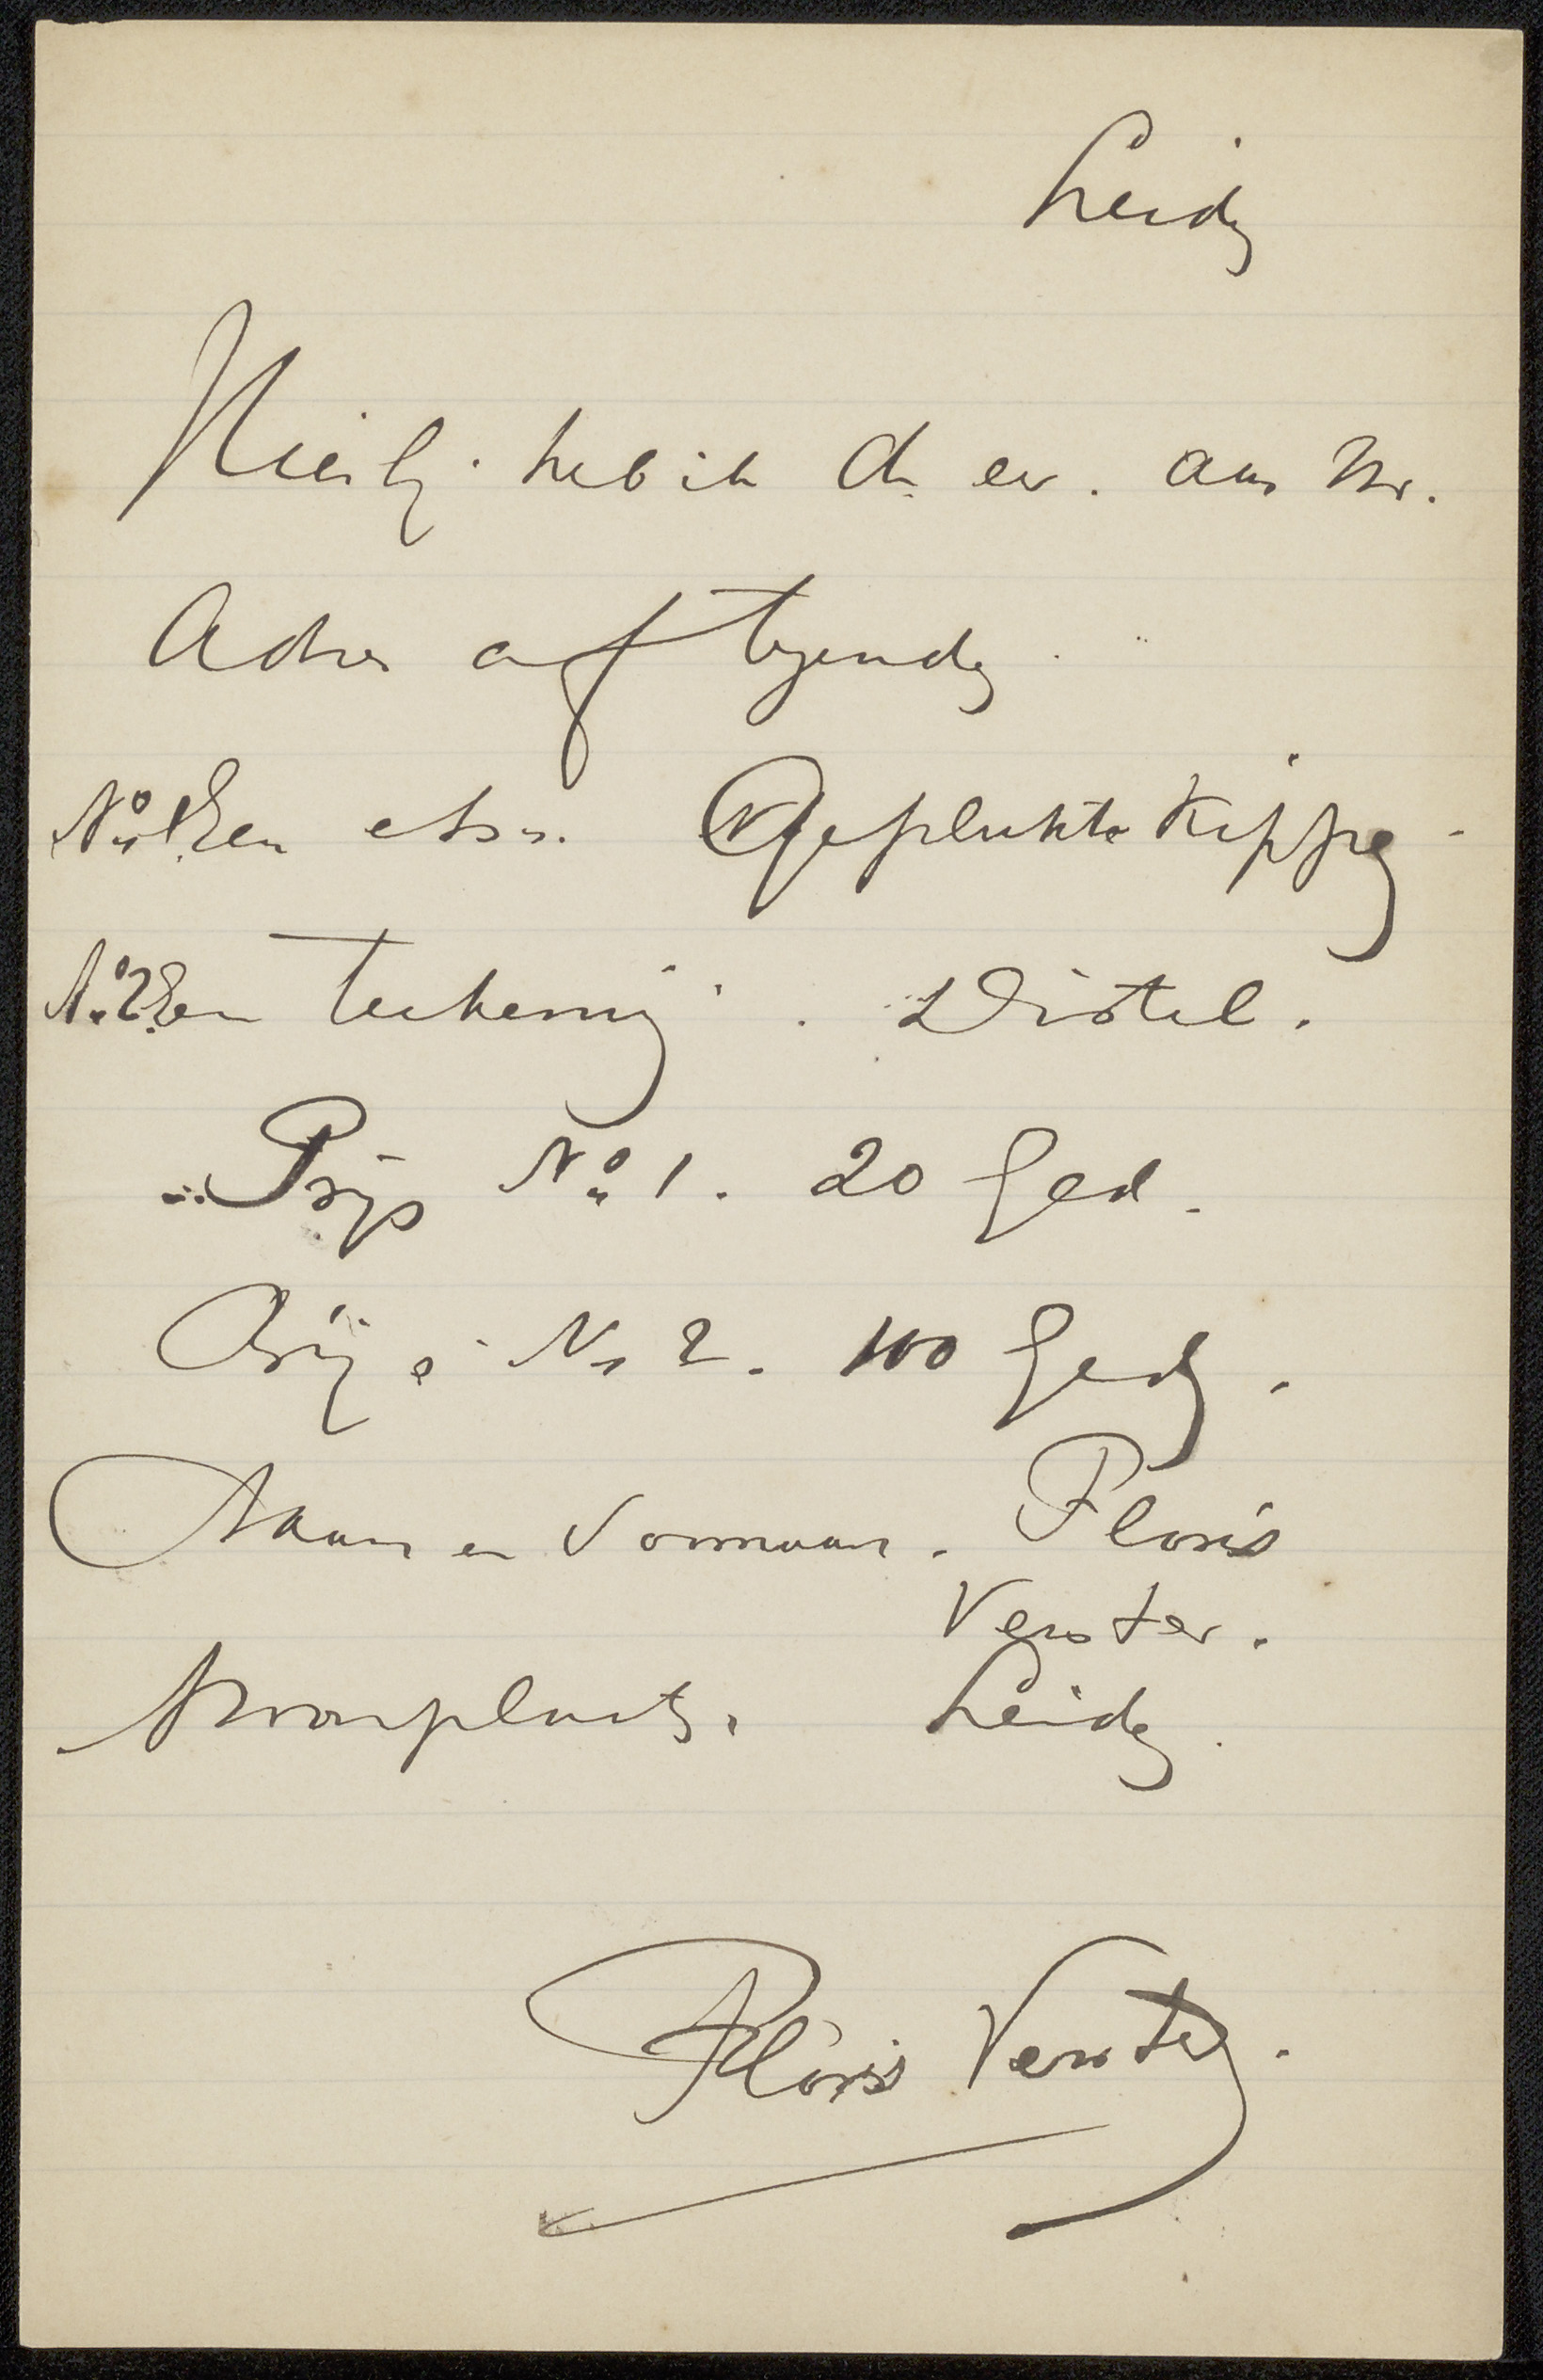 Leiden
Hierbij heb ik de eer. aan Uw.
Adres af te zenden
No 1. Een ets. Geplukte Kippen
No 2. Een teekening. Distel.
Prijs No 1. 20 Gld.
Prijs No 2. 100 Gld.
Naam en Voornaam. Floris
Verster.
Woonplaats. Leiden.
Floris Verster.